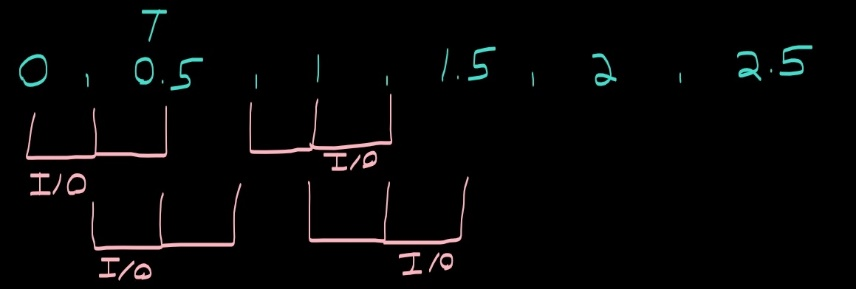 T
0 , 0.5 , 1 , 1.5 , 2 , 2.5
I/O I/O
I/O I/O